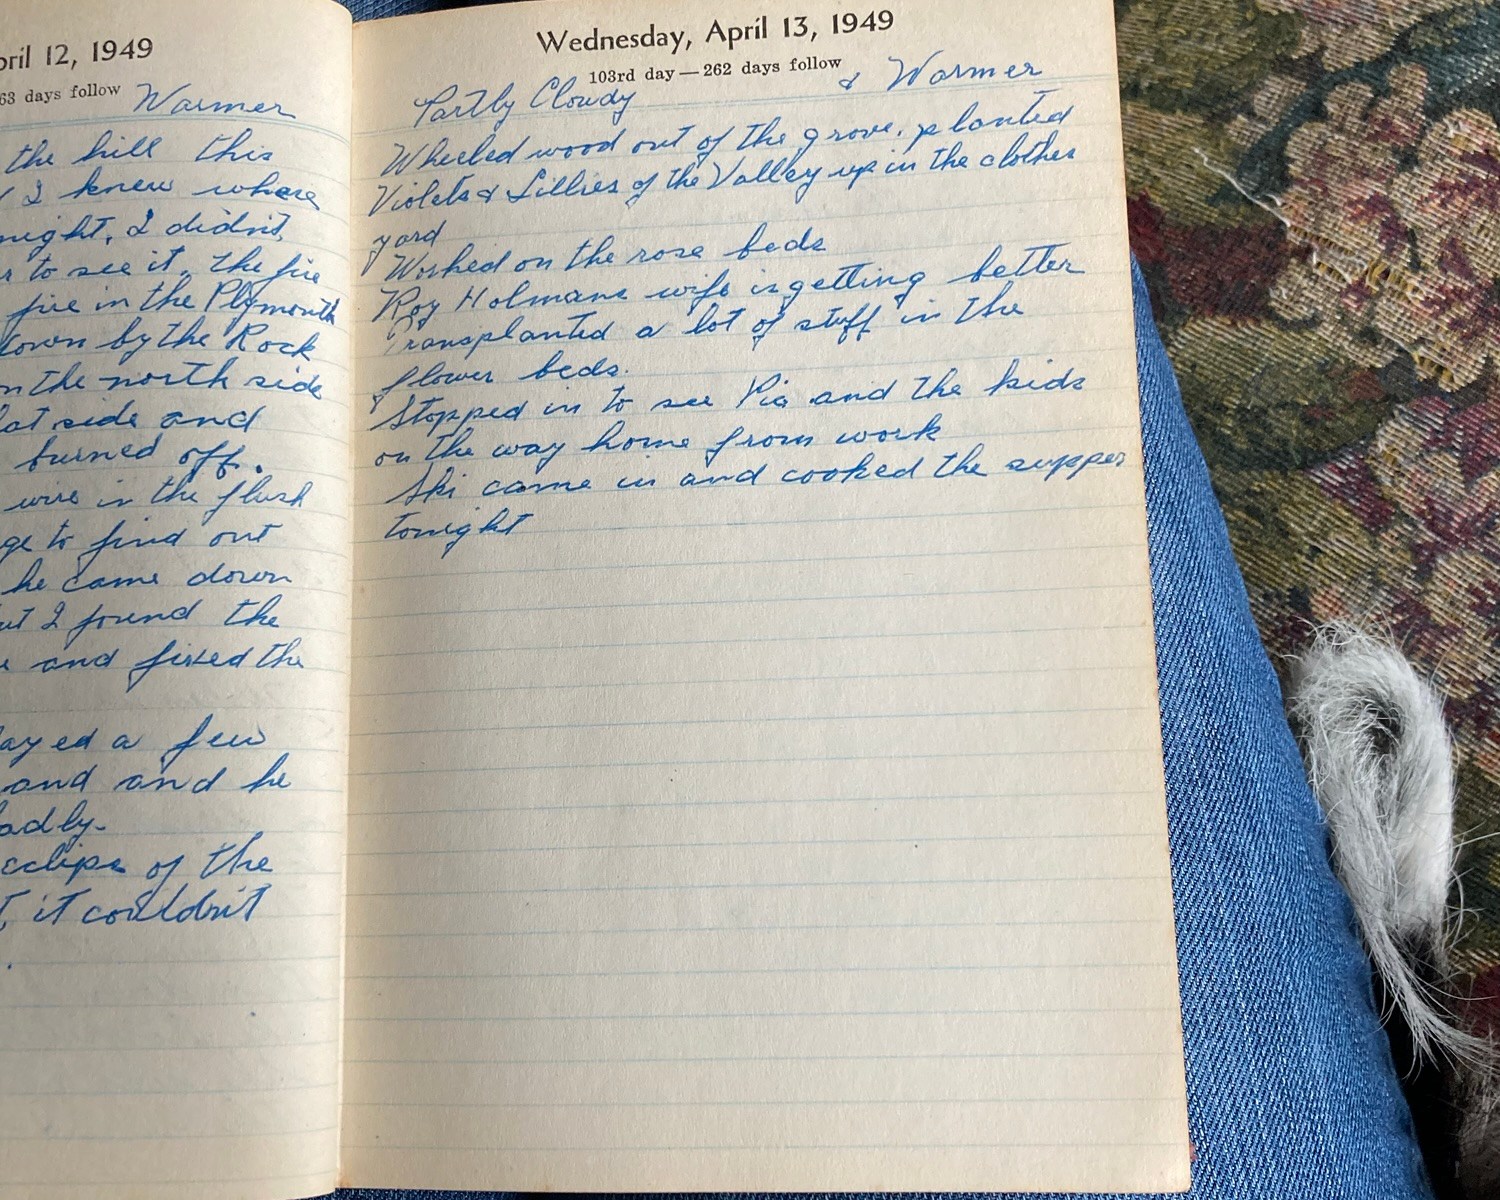 ril 12, 1949
63 days follow
Warmer
the hill this
I knew where
night, I didn't
to see it, the fire
fire in the Plymouth
down by the Rock
on the north side
side and
burned off.
wire in the flush
to find out
he came down
I found the
and fixed the
ayed a few
and and he
adly.
eclips of the
it couldn't
Wednesday, April 13, 1949
103rd day — 262 days follow
Partly Cloudy & Warmer
Wheeled wood out of the grove, planted
Violets & Lillies of the Valley up in the clothes
yard
Worked on the rose beds
Roy Holmans wife is getting better
Transplanted a lot of stuff in the
flower beds.
Stopped in to see Pia and the kids
on the way home from work
Ski came in and cooked the supper
tonight